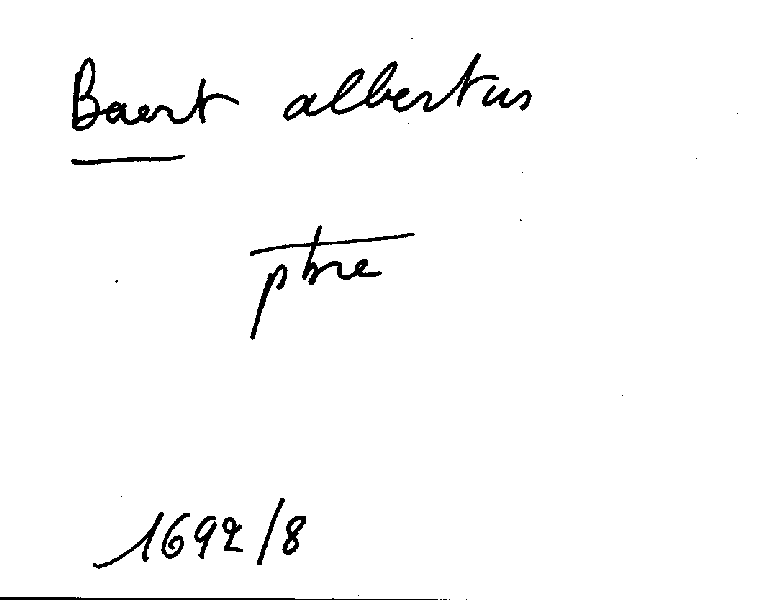 Baert albertus
pbre
1692/8